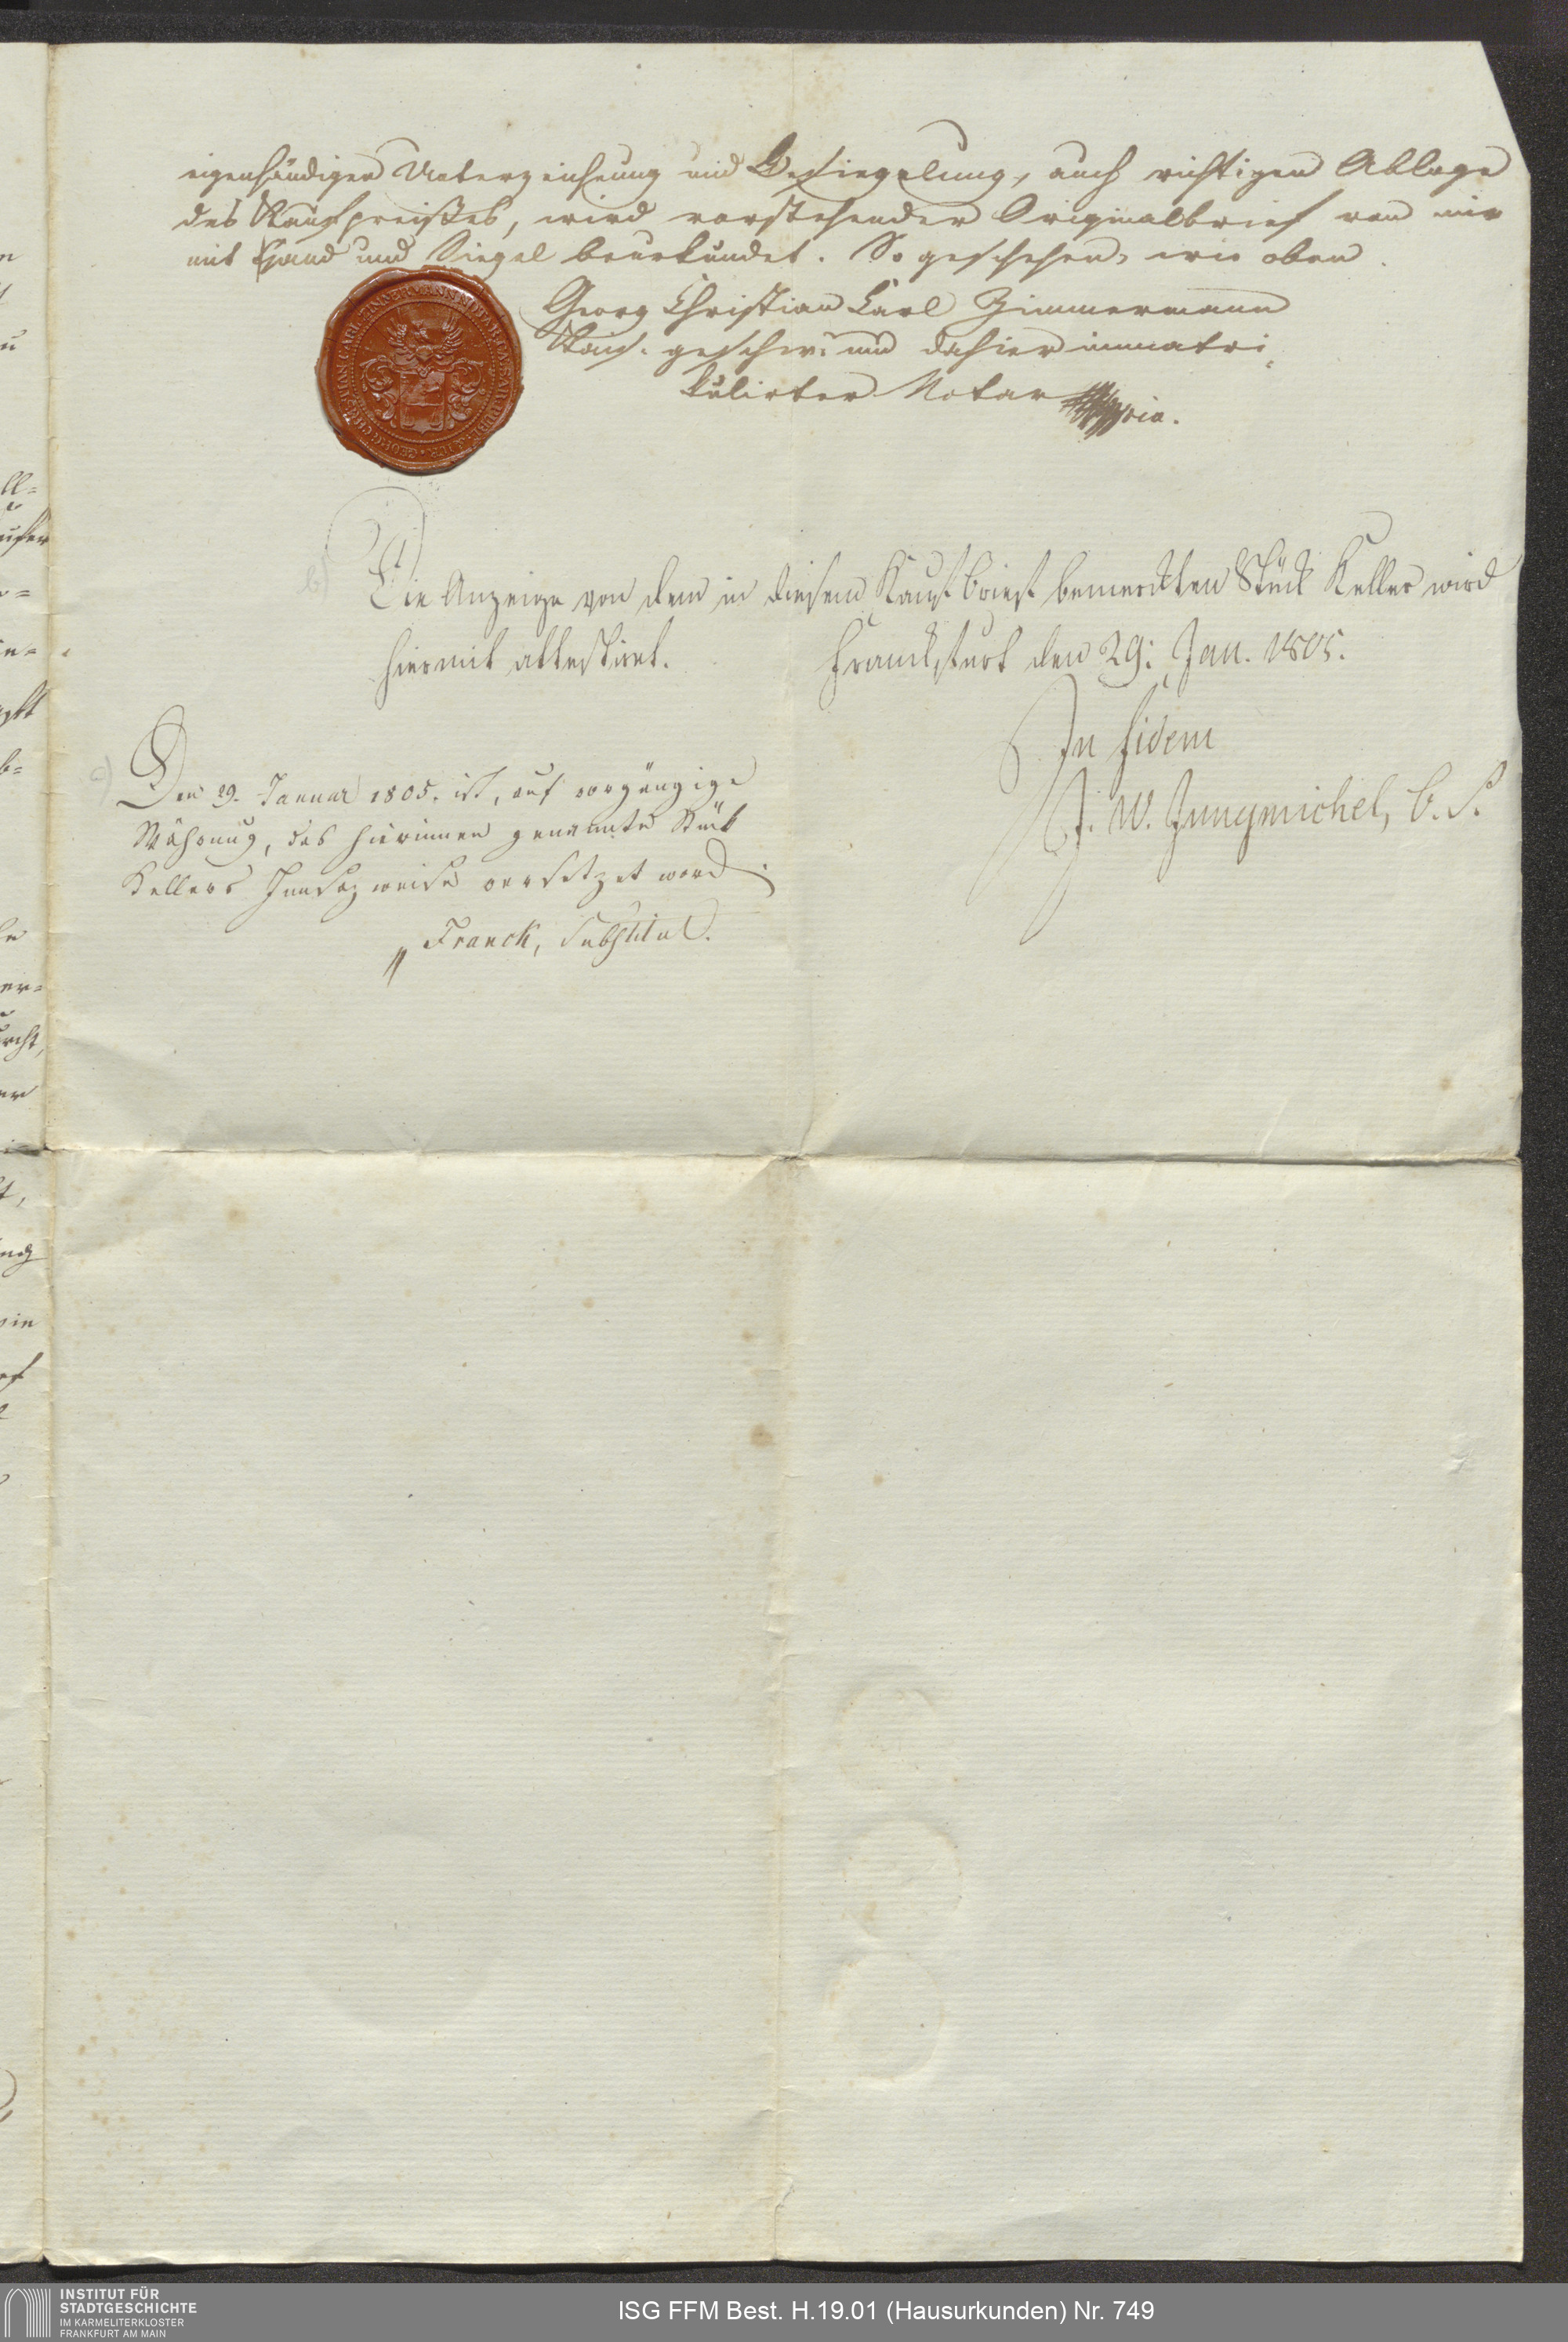 eigenhändiger Unterzeichnung und Besiegelung, auch richtigen Ablage
des Kaufpreißes, wird vorstehender Originalbrief von mir
mit Hand und Siegel beurkundet. So geschehen, wie oben.
Georg Christian Carl Zimmermann
Kais. geschw. und dahier immatri-
kulirter Notar mppria.
b) Die Anzeige von dem in diesem Kaufbrief bemerckten Stück Keller wird
hiermit attestiret. Franckfurt den 29: Jan. 1805.
In fidem
J. W. Jungmichel,
c) Den 29. Januar 1805. ist, auf vorgängige
Währung, das hierinnen genannte Stück
Kellers Innsaz weise versetzet word.
Franck, Substitut.
INSTITUT FÜR
STADTGESCHICHTE
IM KARMELITERKLOSTER
FRANKFURT AM MAIN
ISG FFM Best. H.19.01 (Hausurkunden) Nr. 749